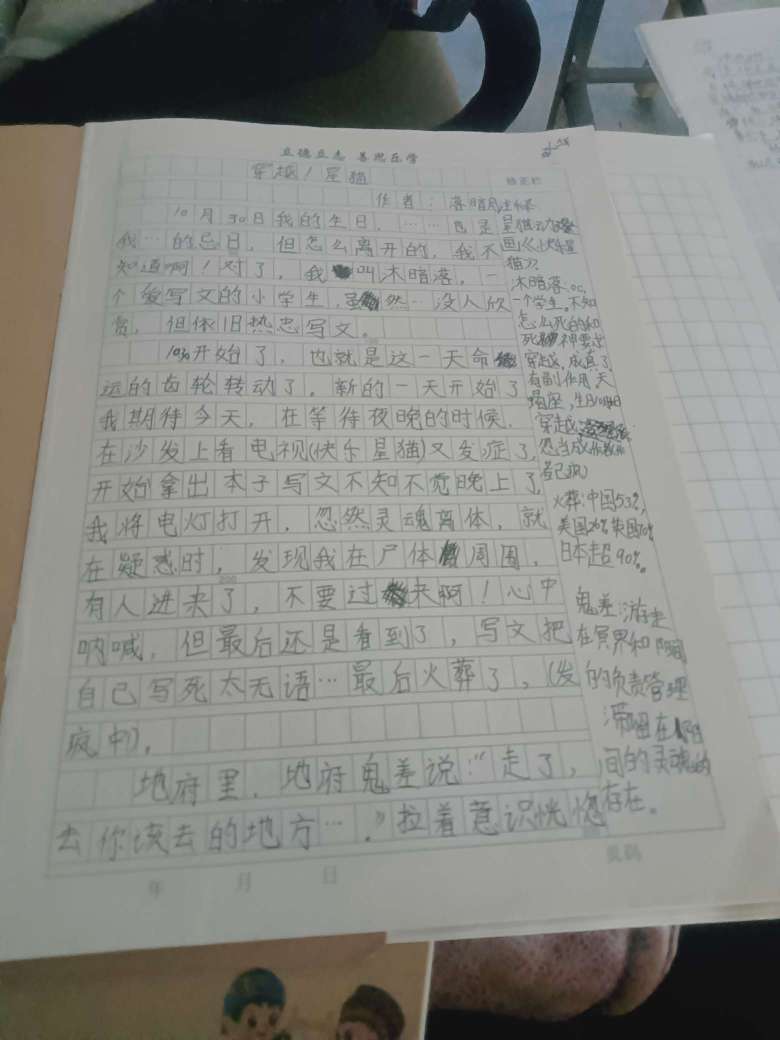 立德立志 善思乐学
穿越!星猫
作者:落暗
10月30日我的生日,……也是
我…的忌日,但怎么离开的,我不
知道啊!对了,我叫沐暗落,一
个爱写文的小学生,虽然…没人欣
赏,但依旧热忠写文。
10.30开始了,也就是这一天命
运的齿轮转动了。新的一天开始了
我期待今天,在等待夜晚的时候,
在沙发上看电视(快乐星猫)又发症了,
开始拿出本子写文不知不觉晚上了,
我将电灯打开,忽然灵魂离体,就
在疑惑时,发现我在尸体周围,
200
有人进来了,不要过来啊!心中
呐喊,但最后还是看到了,写文把
自己写死太无语…最后火葬了,(发
疯中)。
地府里,地府鬼差说:“走了,
去你该去的地方…。”拉着意识恍惚
年 月 日
页码
修正栏
星猫
画《快乐星
猫》
沐暗落oc,
一个学生,不知
怎么死的和
死神要求
穿越,成真了
有副作用,天
蝎座,生日10月30日
穿越:
火葬:中国53%,
美国26%英国70%
日本超90%。
鬼差:游走
在冥界和阳间
的负责管理
滞留在阳
间的灵魂的
存在。